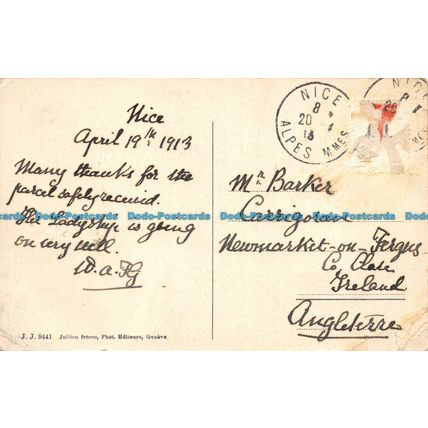 Nice
April 19th 1913
Many thanks for the
parcel safely received.
Her Ladyship is going
on very well.
W.a.
J. J. 9441 Jullien frères, Phot. Editeurs, Genève
NICE
8
20
13
ALPES MMES
NICE
Mr Barker
Carrigoran
Newmarket-on-Fergus
Co Clare
Ireland
Angleterre
Dodo-Postcards Dodo-Postcards Dodo-Postcards Dodo-Postcards